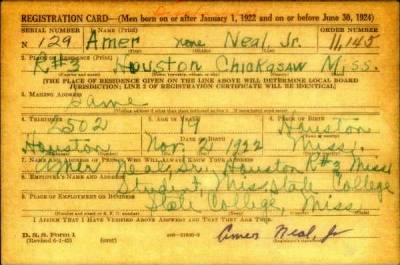 REGISTRATION CARD—(Men born on or after January 1, 1922 and on or before June 30, 1924)
SERIAL NUMBER 1. NAME (Print) ORDER NUMBER
N 129 Amer none Neal, Jr. 11,145
2. PLACE OF RESIDENCE (Print)
R#3 Houston Chickasaw Miss.
(THE PLACE OF RESIDENCE GIVEN ON THE LINE ABOVE WILL DETERMINE LOCAL BOARD
JURISDICTION; LINE 2 OF REGISTRATION CERTIFICATE WILL BE IDENTICAL)
3. MAILING ADDRESS
Same
4. TELEPHONE 5. AGE IN YEARS 6. PLACE OF BIRTH
2502 19 Houston
Houston Nov. 21 1922 Miss.
7. NAME AND ADDRESS OF PERSON WHO WILL ALWAYS KNOW YOUR ADDRESS
Amer Neal, Sr., Houston R#3 Miss
8. EMPLOYER'S NAME AND ADDRESS
Student, Miss. State College
9. PLACE OF EMPLOYMENT OR BUSINESS
State College, Miss.
I AFFIRM THAT I HAVE VERIFIED ABOVE ANSWERS AND THAT THEY ARE TRUE.
D. S. S. Form 1
Amer Neal, Jr